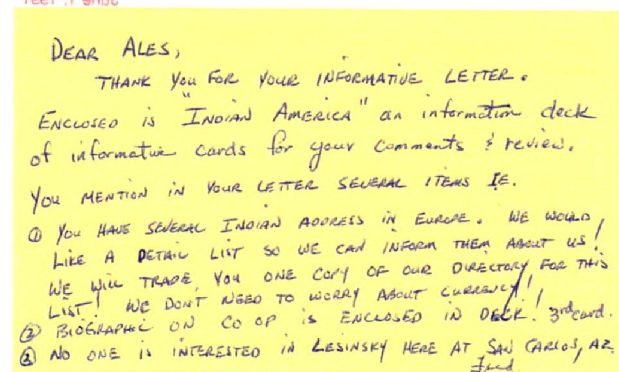 DEAR ALES,
THANK YOU FOR YOUR INFORMATIVE LETTER.
ENCLOSED IS "INDIAN AMERICA" an information deck
of informative cards for your comments & review.
YOU MENTION IN YOUR LETTER SEVERAL ITEMS IE.
① YOU HAVE SEVERAL INDIAN ADDRESS IN EUROPE. WE WOULD
LIKE A DETAIL LIST SO WE CAN INFORM THEM ABOUT US!
WE WILL TRADE YOU ONE COPY OF OUR DIRECTORY FOR THIS
LIST! WE DON'T NEED TO WORRY ABOUT CURRENCY!
② BIOGRAPHIC ON CO OP IS ENCLOSED IN DECK! 3rd card.
③ NO ONE IS INTERESTED IN LESINSKY HERE AT SAN CARLOS, AZ